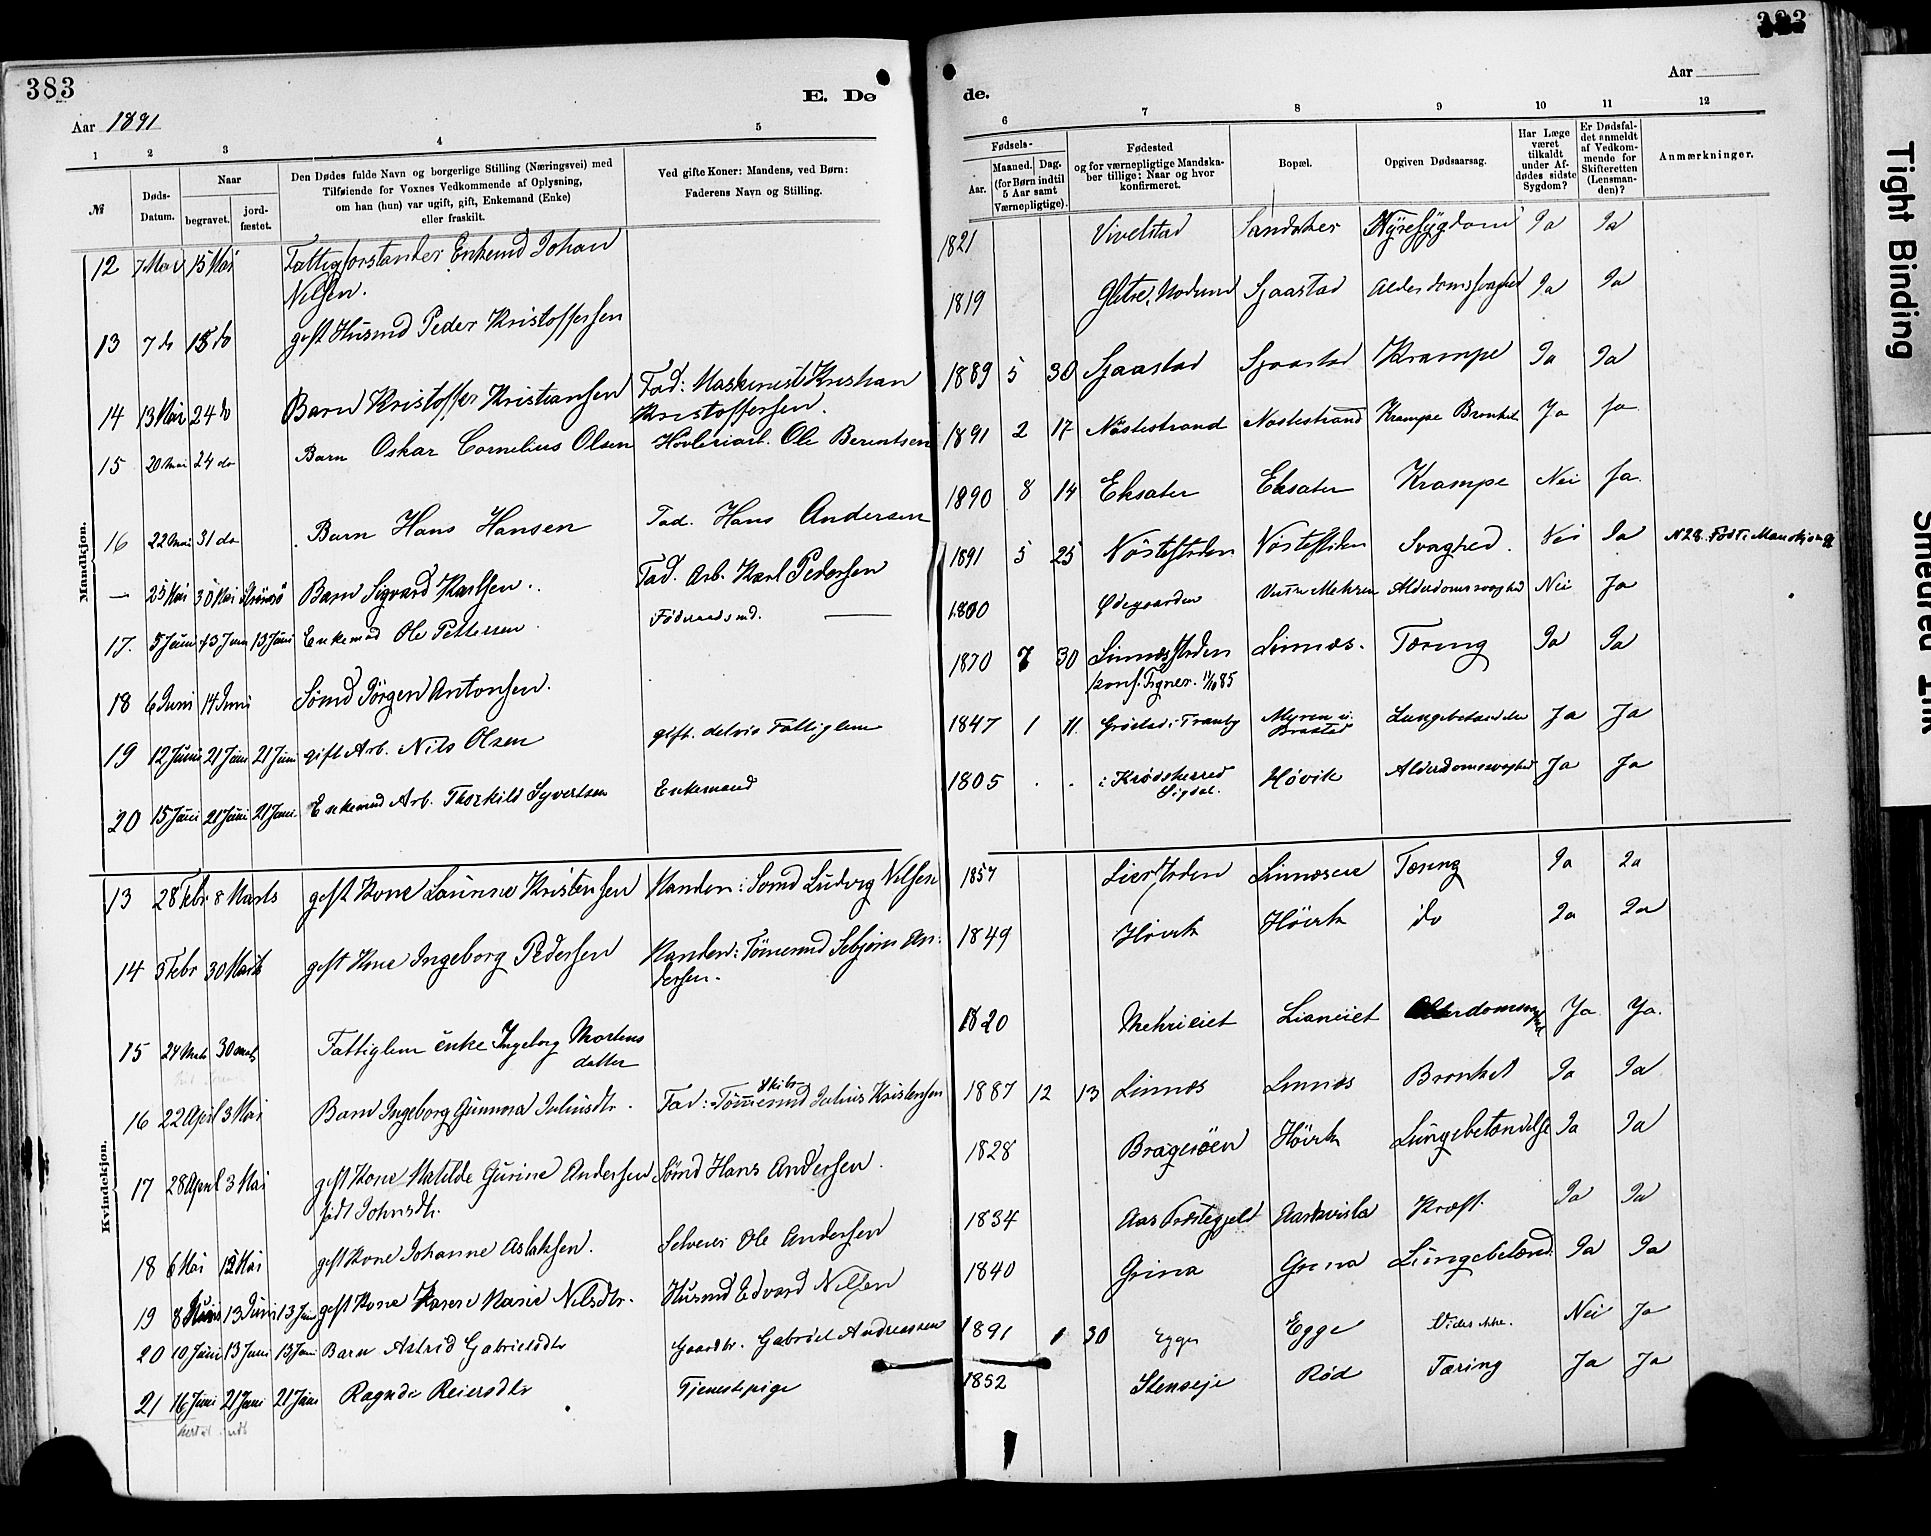 383
383
Aar 1891
E. Dø
de.
Aar
1
2
3
4
5
6
7
8
9
10
11
12
№
Døds-
Datum.
Naar
begravet.
jord-
fæstet.
Den Dødes fulde Navn og borgerlige Stilling (Næringsvei) med
Tilføiende for Voxnes Vedkommende af Oplysning,
om han (hun) var ugift, gift, Enkemand (Enke)
eller fraskilt.
Ved gifte Koner: Mandens, ved Børn:
Faderens Navn og Stilling.
Fødsels-
Aar.
Maaned.
Dag.
(for Børn indtil
5 Aar samt
Værnepligtige).
Fødested
og for værnepligtige Mandska-
ber tillige: Naar og hvor
konfirmeret.
Bopæl.
Opgiven Dødsaarsag.
Har Læge
været
tilkaldt
under Af-
dødes sidste
Sygdom?
Er Dødsfal-
det anmeldt
af Vedkom-
mende for
Skifteretten
(Lensman-
den)?
Anmærkninger.
Mandkjøn.
12 7 Mai 15 Mai Fattigforstander Enkemd Johan 1821 Vivelstad Sandaker Nyresygdom Ja Ja
Nilsen.
13 7 do 18 do gift Husmd Peder Kristoffersen 1819 Glitre, Modum Sjaastad Alderdomssvaghed Ja Ja
14 13 Mai 24 do Barn Kristoffer Kristiansen Fad: Maskinist Kristian 1889 5 30 Sjaastad Sjaastad Krampe Ja Ja
Kristoffersen.
15 20 Mai 24 do Barn Oskar Cornelius Olsen Høvleriarb. Ole Berentsen 1891 2 17 Nøstestrand Nøstestrand Krampe Bronkit Ja Ja
16 22 Mai 31 do Barn Hans Hansen Fad. Hans Andersen 1890 8 14 Eksater Eksater Krampe Nei Ja
— 25 Mai 30 Mai Strømsø Barn Sigvard Karlsen. Fad. Arb. Karl Pedersen 1891 5 25 Nøstestrden Nøstestrden Svaghed. Nei Ja N 28. Født. Mandkjøn
17. 5 Juni 13 Juni 13 Juni Enkemd Ole Pettersen. Føderaadsmd. — 1800 Ødegaarden Mehren Alderdomssvaghed Nei Ja
18 6 Juni 14 Juni Sømd Jörgen Antonsen. 1870 7 30 Linnesstrden Linnæs. Tæring Ja Ja
konf. Tegner. 11/10 85
19 12 Juni 21 Juni 21 Juni gift Arb. Nils Olsen gift. delvis Fattiglem 1847 1 11. i Tranby Myren u. Lungebetændelse Ja Ja
Brastad
20 15 Juni 21 Juni 21 Juni Enkemd Arb. Thorkild Syvertsen Enkemand 1805 . . i Krødsherred Høvik Alderdomssvaghed Ja Ja
Sigdal.
Kvindekjøn.
13 28 Febr. 8 Marts gift Kone Laurine Kristensen Manden: Sømd Ludvig Nilsen 1857 Lierstrden Linneseie Tæring Ja Ja
14 3 Febr 30 Marts gift Kone Ingeborg Pedersen Manden: Tømmermd Sebjörn An- 1849 Hövik Hövik do Ja Ja
dersen.
15 24 Marts 30 Marts Fattiglem enke Ingeborg Mortens 1820 Mehrieiet Lianeiet Alderdomssvaghed Ja Ja.
datter
16 22 April 3 Mai Barn Ingeborg Gunnora Juliusdtr. Fad: Skibs Tømmermd Julius Kristensen 1887 12 13 Linnæs Linnæs Bronkit Ja Ja
17 28 April 3 Mai gift Kone Matilde Gurine Andersen Sømd Hans Andersen. 1828 Bragerøen Hövik Lungebetændelse Ja Ja
født Johnsdtr.
18 6 Mai 12 Mai gift Kone Johanne Aslaksen. Selveier Ole Andersen 1834 Aas Præstegjeld Aaskvisla Kræft. Ja Ja
19 8 Juni 13 Juni 13 Juni gift Kone Karen Marie Nilsdtr. Husmd Edvard Nilsen 1840 Grina Grina Lungebetænd. Ja Ja
20 10 Juni 13 Juni 13 Juni Barn Astrid Gabrielsdtr Gaardbr. Gabriel Andreassen 1891 1 30 Egge Egge Vides ikke. Nei Ja
21 16 Juni 21 Juni 21 Juni Ragnde Reiersdtr Tjenestepige 1852 Stenseje Rød Tæring Ja Ja
Tight Binding
Smeared Ink